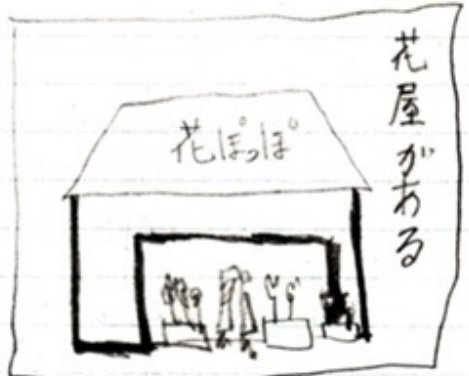 花屋がある
花ぽっぽ